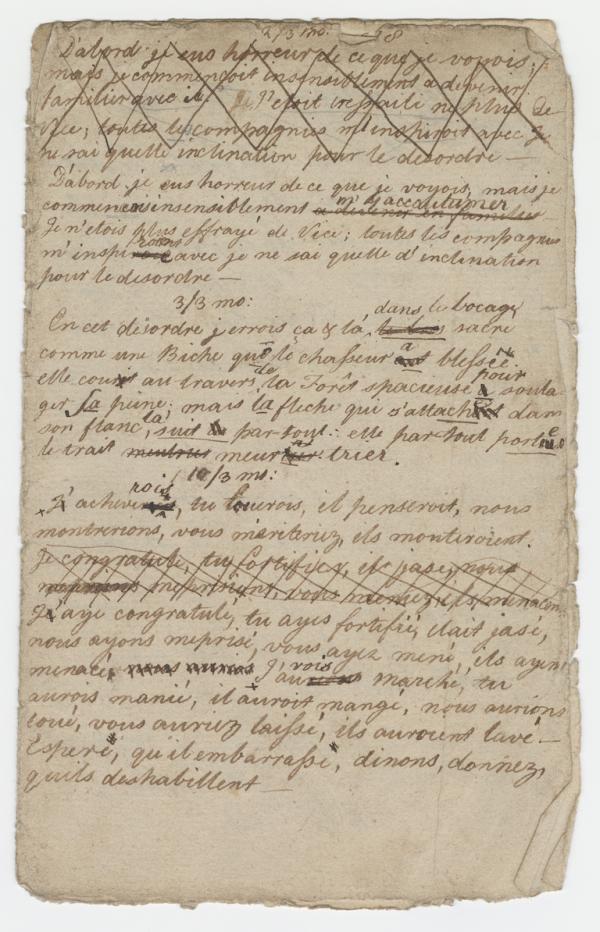 2/3 mo. 98
D'abord je eus horreur de ce que je voyois;
mais je commençoit insensiblement a devenir
familier avec
Vice; toutes les compagnies m'inspiroit avec je
ne sai quelle inclination pour le desordre —
D'abord je eus horreur de ce que je voyois, mais je
m'y accoutumer
commencai insensiblement a devenir en familier
Je n'etois plus effrayé de Vice; toutes les compagnies
roient
m'inspiroit avec je ne sai quelle d'inclination
pour le desordre —
3/3 mo:
dans le bocage
En cet désordre j'errois ça & là, sacre
comme une Biche que le chasseur a blessée
elle court au travers de la Forêt spacieuse pour soula
ger sa peine; mais la fleche qui s'attache dans
son flanc, la suit par-tout: elle par-tout porte
le trait meurtrier.
10/3 mo:
rois
J'acheverois, tu louerois, il penseroit, nous
montrerions, vous meriteriez, ils monteroient.
Je congratule, tu fortifiez, il jase, nous
meprisions, vous menez, ils menacent
J'aye congratulé, tu ayes fortifié, il ait jasé,
nous ayons meprisé, vous ayez mené, ils ayent
menacé, J'aurois marché, tu
aurois manié, il auroit mangé, nous aurions
loué, vous auriez laissé, ils auroient lavé —
Esperé, qu'il embarrasse, dinons, donnez,
quils deshabillent —